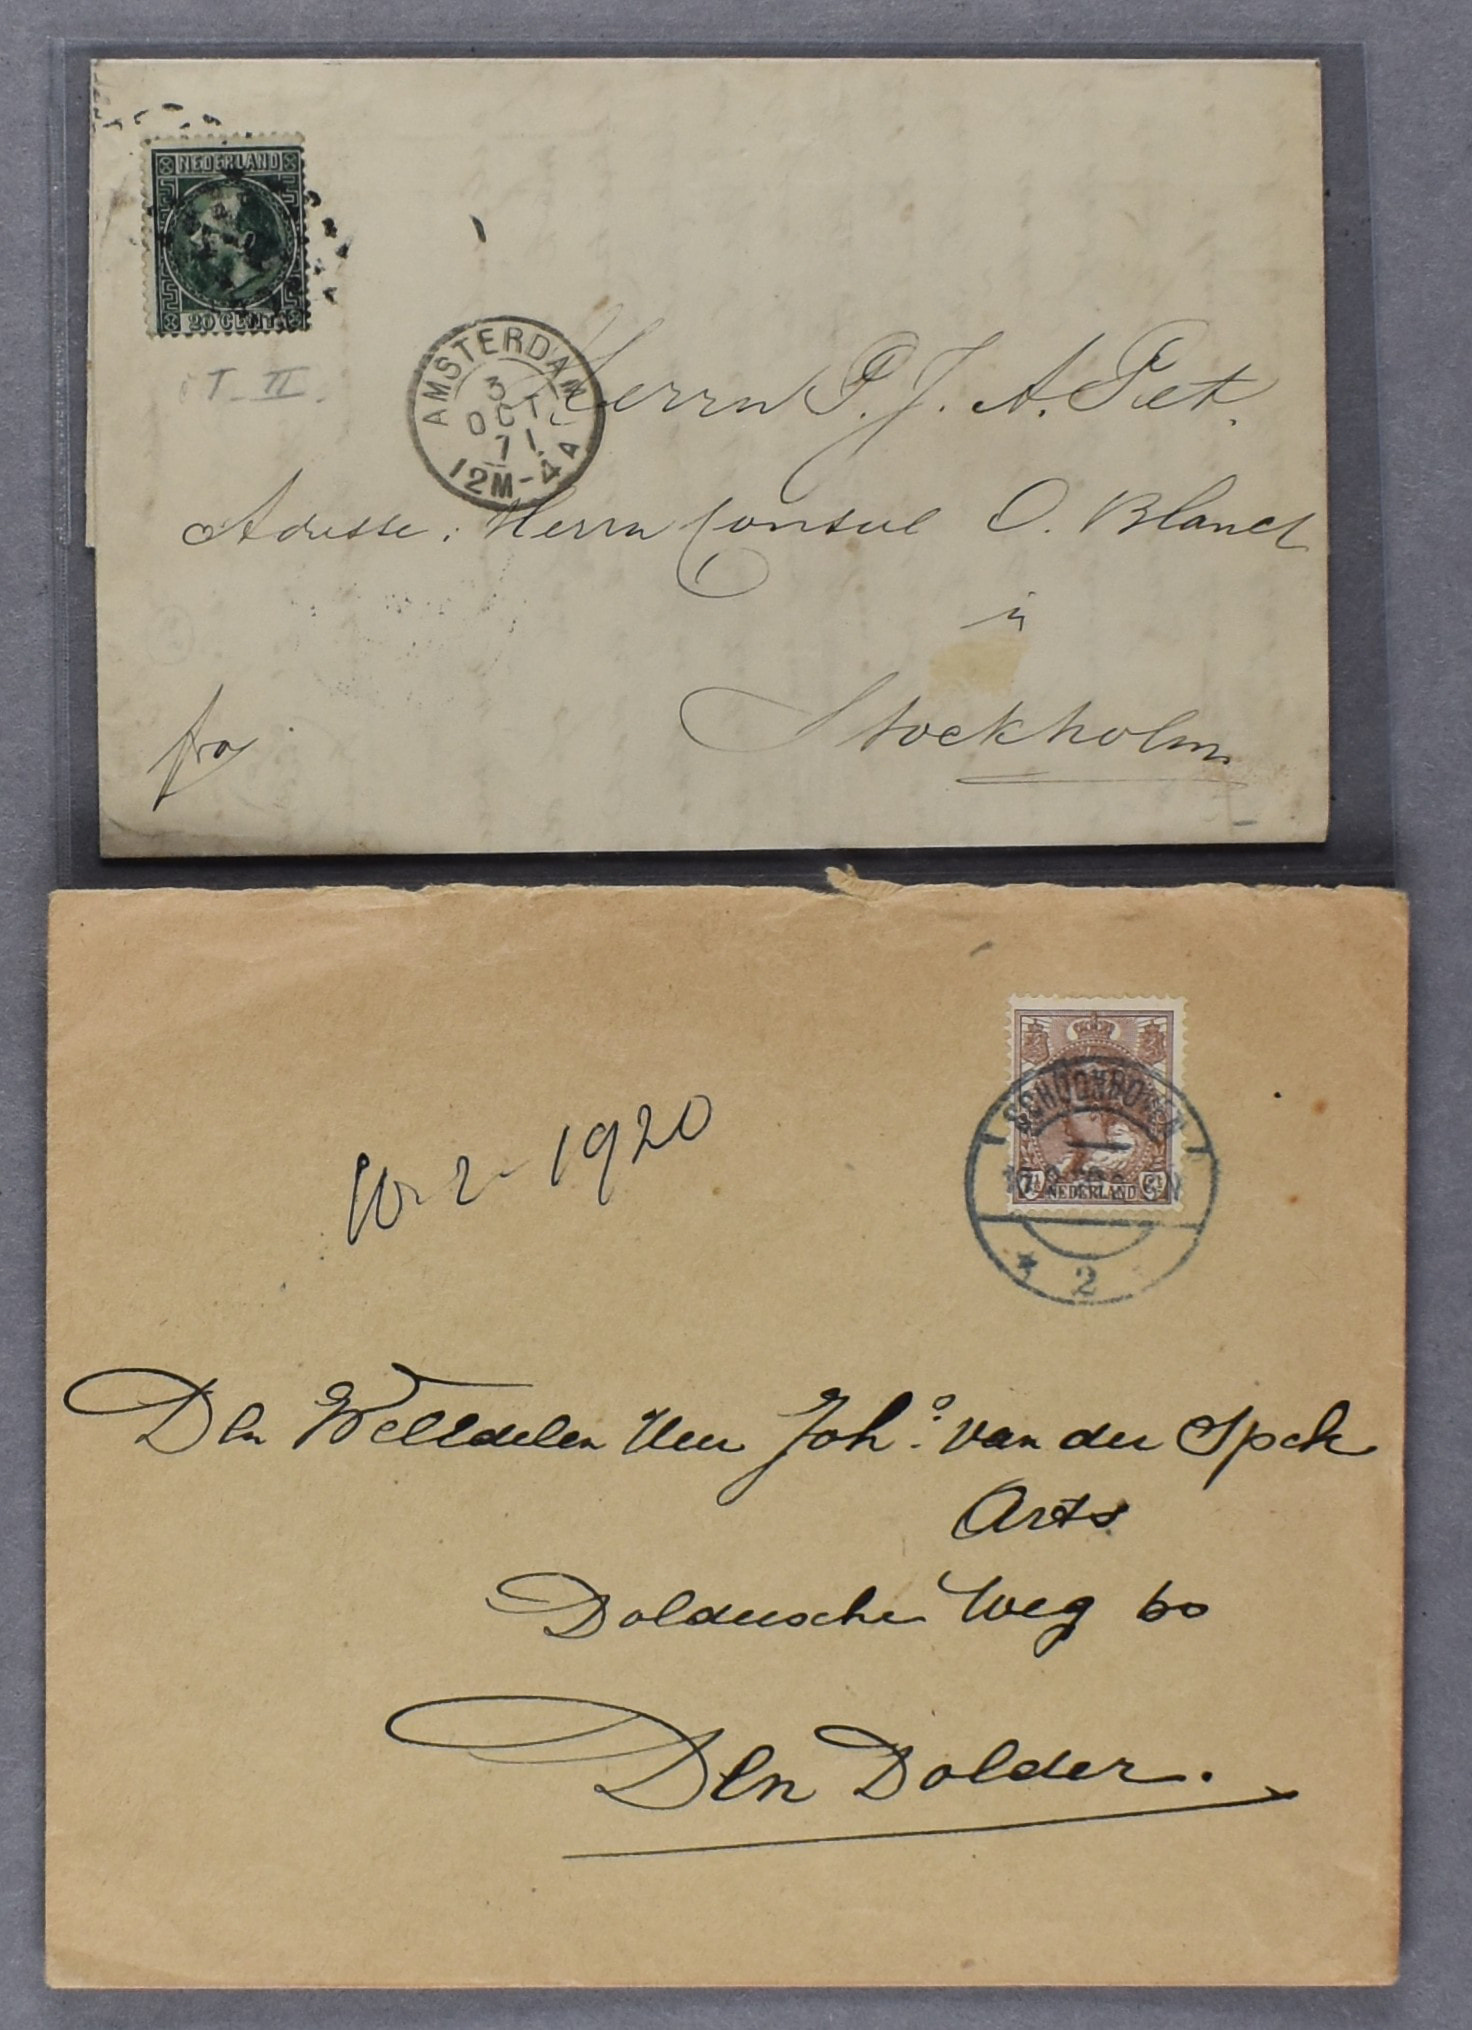 NEDERLAND
20 CENT
T- II.
AMSTERDAM
3
OCT
71
12M-4A
Herrn P. J. A. Piet.
Adresse: Herrn Consul O. Blanck
in
Stockholm
fro
SCHOONHOVEN
7½ NEDERLAND Ct
2
10-2-1920
Den WelEdelen Heer Johs. van der Spek
Arts
Doldersche Weg 60
Den Dolder.